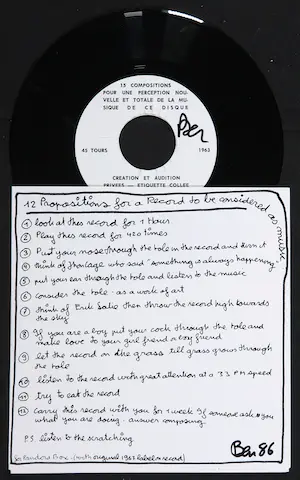 15 COMPOSITIONS
POUR UNE PERCEPTION NOU-
VELLE ET TOTALE DE LA MU-
SIQUE DE CE DISQUE
Ben
45 TOURS
1963
CREATION ET AUDITION
PRIVEES — ETIQUETTE COLLEE
12 Propositions for a Record to be considered as music
1 look at this record for 1 Hour
2 Play this record for 420 times
3 Put your nose through the hole in the record and turn it
4 think of John Cage who said "something is always happening"
5 put your ear through the hole and listen to the music
6 consider the hole as a work of art
7 think of Erik Satie then throw the record high towards
the sky
8 If you are a boy put your cock through the hole and
make love to your girl friend or boy friend
9 let the record in the grass till grass grows through
the hole
10 listen to the record with great attention at a 33 PM speed
11 try to eat the record
12 carry this record with you for 1 week If someone asks you
what you are doing. answer composing.
P.S listen to the scratching
for Pandora's Box (with original 1963 label on record)
Ben 86